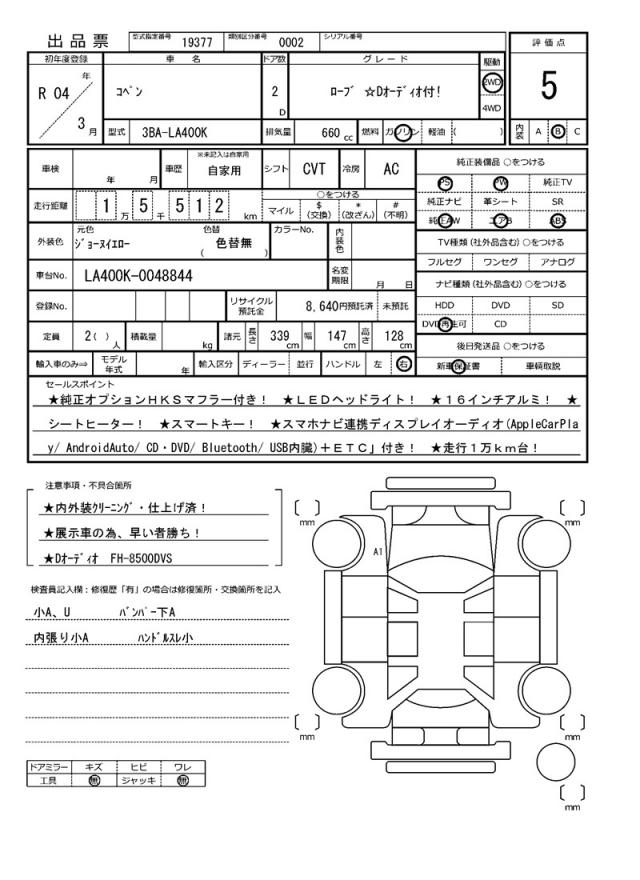 出品票 型式指定番号 19377 類別区分番号 0002 シリアル番号
評価点
5
初年度登録 車名 ドア数 グレード 駆動
R 04 年 3 月 コペン 2 D ローブ ☆Dオーディオ付! 2WD 4WD
型式 3BA-LA400K 排気量 660 cc 燃料 ガソリン 軽油 ( )
内装 A B C
車検 年 月 車歴 ※未記入は自家用 自家用 シフト CVT 冷房 AC
走行距離 1 万 5 千 5 1 2 km
○をつける
マイル $(交換) *(改ざん) #(不明)
外装色 元色 ジョーヌイエロー 色替 色替無 ( ) カラーNo. 内装色
車台No. LA400K-0048844 名変期限 月 日
登録No. リサイクル預託金 8,640円預託済 未預託
定員 2( )人 積載量 kg 諸元 長さ 339cm 幅 147cm 高さ 128cm
輸入車のみ⇒ モデル年式 年 輸入区分 ディーラー 並行 ハンドル 左 右
純正装備品 ○をつける
PS PW 純正TV
純正ナビ 革シート SR
純正AW エアB ABS
TV種類(社外品含む)○をつける
フルセグ ワンセグ アナログ
ナビ種類(社外品含む)○をつける
HDD DVD SD
DVD再生可 CD
後日発送品 ○をつける
新車保証書 車輌取説
セールスポイント
★純正オプションHKSマフラー付き! ★LEDヘッドライト! ★16インチアルミ! ★
シートヒーター! ★スマートキー! ★スマホナビ連携ディスプレイオーディオ(AppleCarPla
y/ AndroidAuto/ CD・DVD/ Bluetooth/ USB内臓)+ETC」付き! ★走行1万km台!
注意事項・不具合箇所
★内外装クリーニング・仕上げ済!
★展示車の為、早い者勝ち!
★Dオーディオ FH-8500DVS
検査員記入欄:修復歴「有」の場合は修復箇所・交換箇所を記入
小A、U バンパー下A
内張り小A ハンドルスレ小
ドアミラー キズ ヒビ ワレ
工具 無 ジャッキ 無
mm
mm
A1
mm
mm
mm